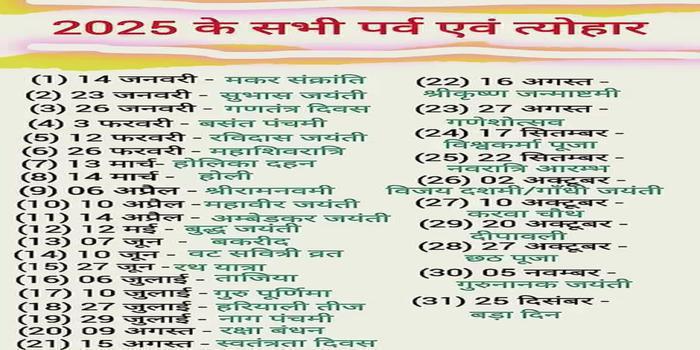 2025 के सभी पर्व एवं त्योहार
(1) 14 जनवरी - मकर संक्रांति
(2) 23 जनवरी - सुभास जयंती
(3) 26 जनवरी - गणतंत्र दिवस
(4) 3 फरवरी - बसंत पंचमी
(5) 12 फरवरी - रविदास जयंती
(6) 26 फरवरी - महाशिवरात्रि
(7) 13 मार्च- होलिका दहन
(8) 14 मार्च - होली
(9) 06 अप्रैल - श्रीरामनवमी
(10) 10 अप्रैल -महावीर जयंती
(11) 14 अप्रैल - अम्बेडकर जयंती
(12) 12 मई - बुद्ध जयंती
(13) 07 जून - बकरीद
(14) 10 जून - वट सवित्री व्रत
(15) 27 जून -रथ यात्रा
(16) 06 जुलाई - ताजिया
(17) 10 जुलाई -गुरु पूर्णिमा
(18) 27 जुलाई - हरियाली तीज
(19) 29 जुलाई - नाग पंचमी
(20) 09 अगस्त - रक्षा बंधन
(21) 15 अगस्त - स्वतंत्रता दिवस
(22) 16 अगस्त -
श्रीकृष्ण जन्माष्टमी
(23) 27 अगस्त -
गणेशोत्सव
(24) 17 सितम्बर -
विश्वकर्मा पूजा
(25) 22 सितम्बर -
नवरात्रि आरम्भ
(26) 02 अक्टूबर -
विजय दशमी/गाँधी जयंती
(27) 10 अक्टूबर -
करवा चौथ
(29) 20 अक्टूबर -
दीपावली
(28) 27 अक्टूबर -
छठ पूजा
(30) 05 नवम्बर -
गुरुनानक जयंती
(31) 25 दिसंबर -
बड़ा दिन